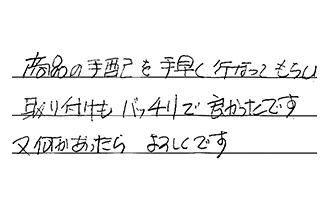 商品の手配を手早く行なってもらい
取り付けもバッチリで良かったです
又何かあったらよろしくです